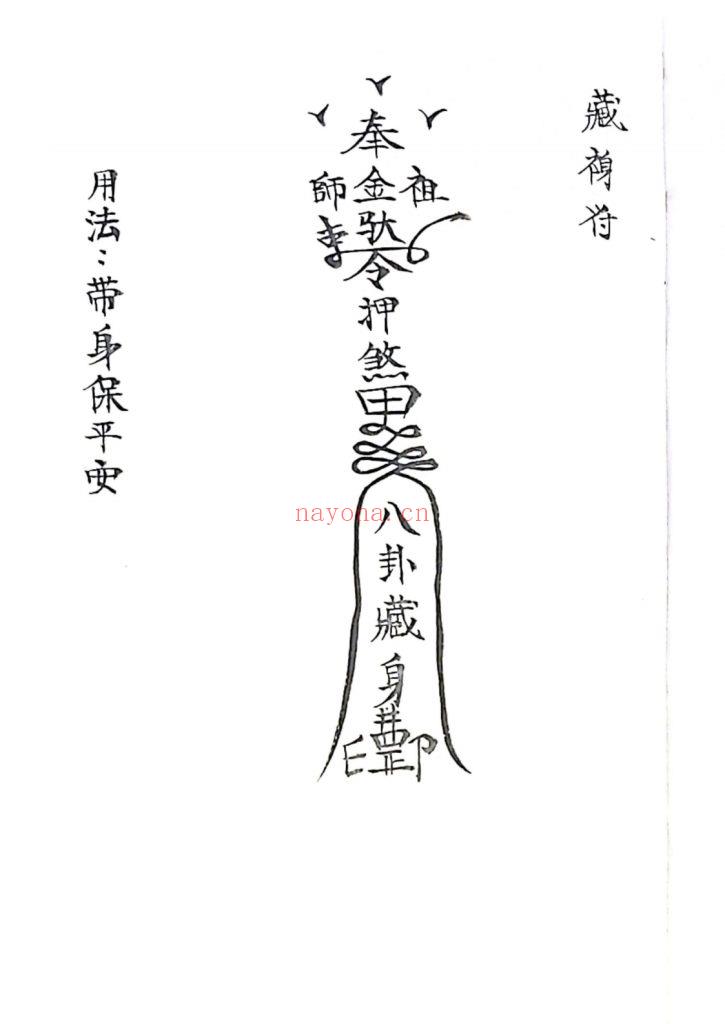 藏身符
奉
祖金師
令
押煞
八卦藏身
用法：带身保平安
nayona.cn